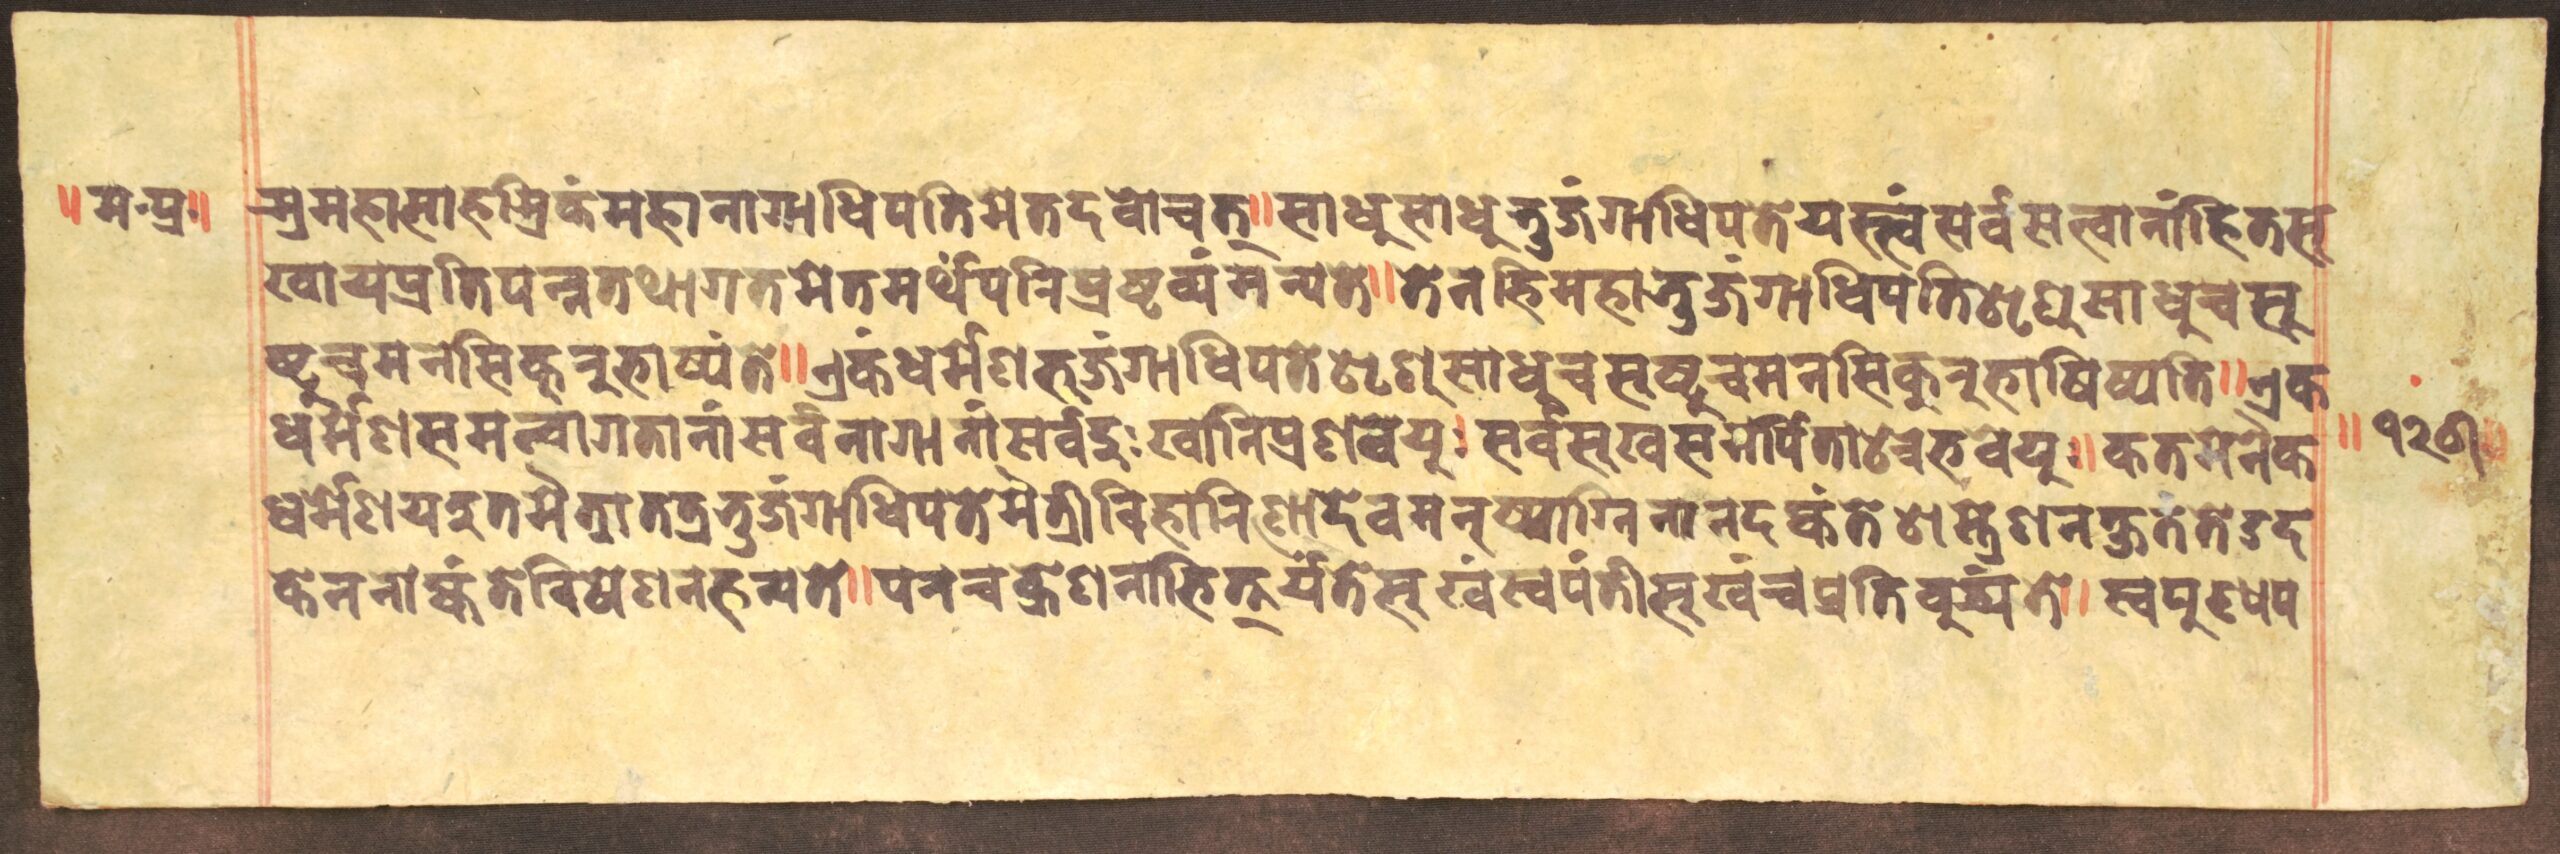 ॥म॰प्र॰॥ स्रमहासाहस्रिकंमहानागाधिपतिमेतदवोचत्॥साधुसाधुभुजंगाधिपतेयस्त्वंसर्वसत्वानांहितसु
खायप्रतिपन्नतथागतमेतमर्थंपरिप्रष्टव्यंमन्यते॥तेनहिमहाभुजंगाधिपतिशृणुसाधुचसु
ष्टुचमनसिकुरुभाष्यंते॥एकंधर्मेणभुजंगाधिपतेशृणुसाधुचसुष्टुचमनसिकुरुभाषिष्यति॥एक
धर्मेणसमत्वागतानांसर्वनागानांसर्वदुःखानिप्रशवेयुः सर्वसुखसमर्पिताश्चभवेयुः॥कतमेनैक
॥१२७॥
धर्मेणयदुतमैत्र्यातत्रभुजंगाधिपतेमैत्रीविहारिणादेवमनुष्याग्निनानदह्यंतेशस्त्रेणनक्षतंतेउद
केननोह्यंतेविषेणनहन्यते॥परचक्रेणनाभित्तूर्यंतेसुखंस्वपंतीसुखंचप्रतिबुध्यंते॥स्वपुण्यप